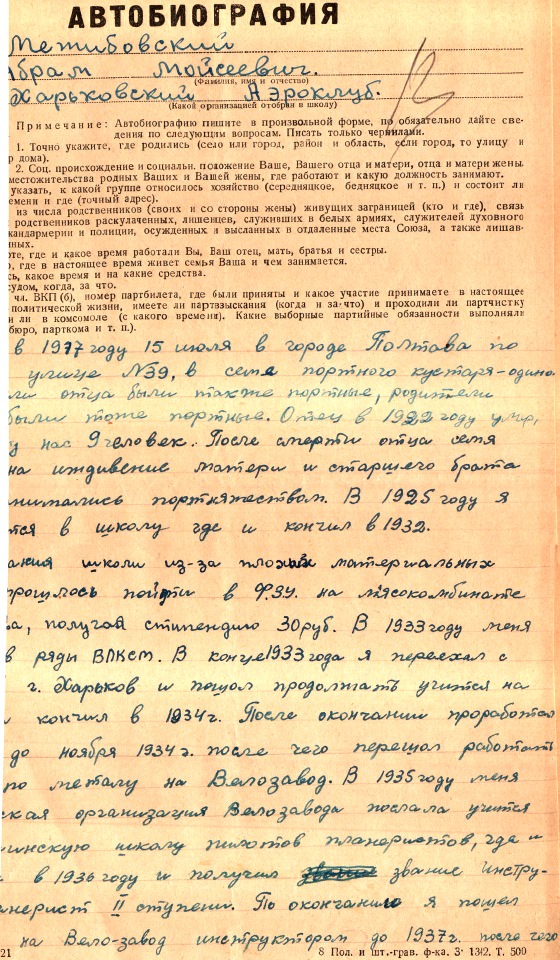 АВТОБИОГРАФИЯ
Межибовский
Абрам Мойсеевич.
(Фамилия, имя и отчество)
Харьковский Аэроклуб.
(Какой организацией отобран в школу)
Примечание: Автобиографию пишите в произвольной форме, но обязательно дайте све-
дения по следующим вопросам. Писать только чернилами.
1. Точно укажите, где родились (село или город, район и область, если город, то улицу и
р дома).
2. Соц. происхождение и социальн. положение Ваше, Вашего отца и матери, отца и матери жены.
местожительства родных Ваших и Вашей жены, где работают и какую должность занимают.
указать, к какой группе относилось хозяйство (середняцкое, бедняцкое и т. п.) и состоит ли
емени и где (точный адрес).
из числа родственников (своих и со стороны жены) живущих заграницей (кто и где), связь
родственников раскулаченных, лишенцев, служивших в белых армиях, служителей духовного
жандармерии и полиции, осужденных и высланных в отдаленные места Союза, а также лишав-
нных.
оте, где и какое время работали Вы, Ваш отец, мать, братья и сестры.
о, где в настоящее время живет семья Ваша и чем занимается.
сь, какое время и на какие средства.
судом, когда, за что.
чл. ВКП(б), номер партбилета, где были приняты и какое участие принимаете в настоящее
политической жизни, имеете ли партвзыскания (когда и за-что) и проходили ли партчистку
и ли в комсомоле (с какого времени). Какие выборные партийные обязанности выполняли
бюро, парткома и т. п.).
в 1917 году 15 июля в городе Полтава по
улице №39, в семе портного кустаря-одино-
ли отца были также портные, родители
были тоже портные. Отец в 1922 году умр,
у нас 9 человек. После смерти отца семя
на иждивение матери и старшего брата
нимались портняжеством. В 1925 году я
тся в школу где и кончил в 1932.
ания школи из-за плохих материальных
рошлось пойти в ФЗУ. на мясокомбинате
ва, получая стипендию 30 руб. В 1933 году меня
в ряды ВЛКСМ. В конце 1933 года я переехал с
г. Харьков и пошол продолжать учится на
и кончил в 1934 г. После окончании проработал
до ноября 1934 г. после чего перешол работать
по металу на Велозавод. В 1935 году меня
ская организация Велозавода послала учится
инскую школу пилотов планеристов, где и
в 1936 году и получил звание инстру-
нерист II ступени. По окончанию я пошел
на Вело-завод инструктором до 1937 г. после чего
21 8 Пол. и шт.-грав. ф-ка. З. 1312. Т. 500